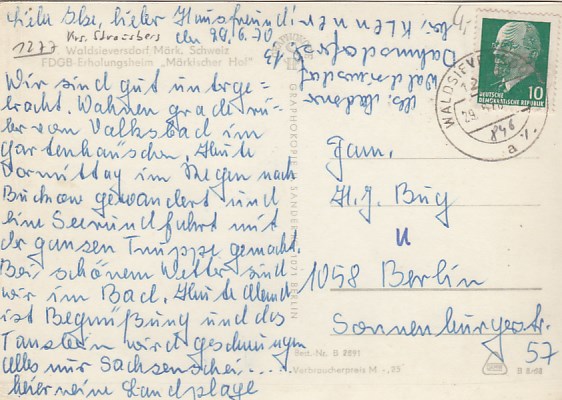 Liebe Ilse, lieber Hausfreund!
1277 Krs. Strausberg den 29.6.70
Waldsieversdorf, Märk. Schweiz
FDGB-Erholungsheim „Märkischer Hof"
Wir sind gut unterge-
bracht. Wohnen gradeüber
vom Volksbad im
Gartenhäuschen. Heute
Vormittag im Regen nach
Buckow gewandert und
eine Seerundfahrt mit
der ganzen Truppe gemacht.
Bei schönem Wetter sind
wir im Bad. Heute Abend
ist Begrüßung und das
Tanzbein wird geschwungen
Alles nur Sachsen hier....
hier eine Landplage
bei Klenner
Dahmsdorfer
Waldsieversdorf
GRAPHOKOPIE SANDER 1071 BERLIN
WALDSIEVERSDORF
29.6.70
a
846
DEUTSCHE
DEMOKRATISCHE REPUBLIK
10
Fam.
H.J. Bug
1058 Berlin
Sonnenburgerstr.
57
Best.-Nr. B 2291
Verbraucherpreis M -,25